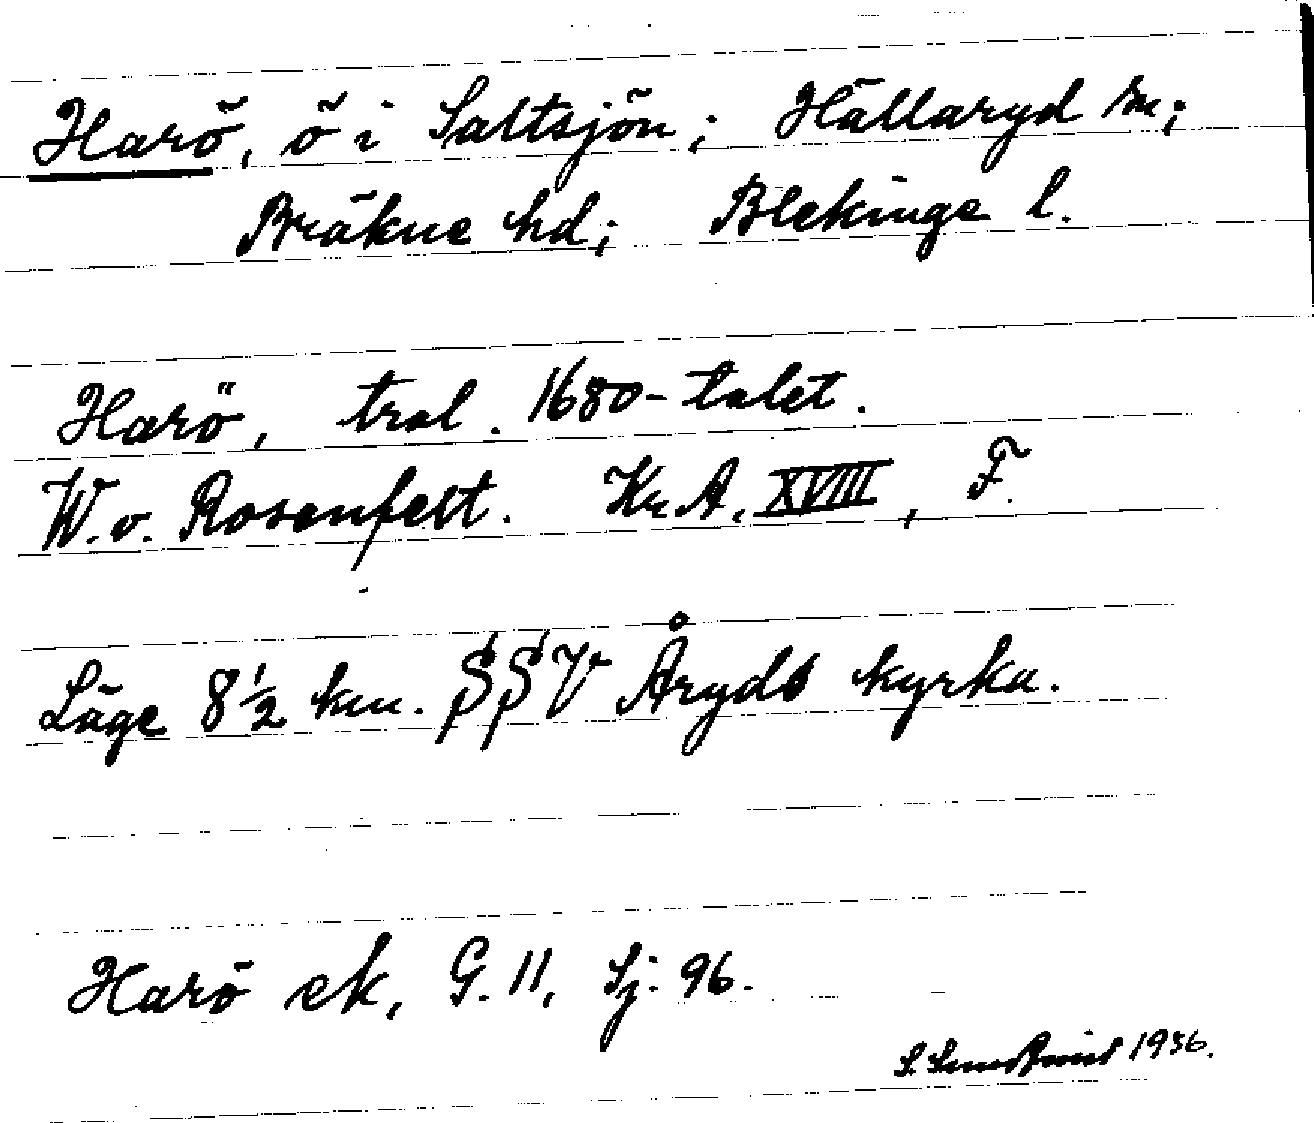 Harö, ö i Saltsjön; Hällaryd sn;
Bräkne hd; Blekinge l.
Harö, trol. 1680-talet.
W. v. Rosenfelt. Kr. A. XVIII, F.
Läge 8 1/2 km. SSV Åryds kyrka.
Harö ek, G. 11, Sj. 96.
S. 1936.